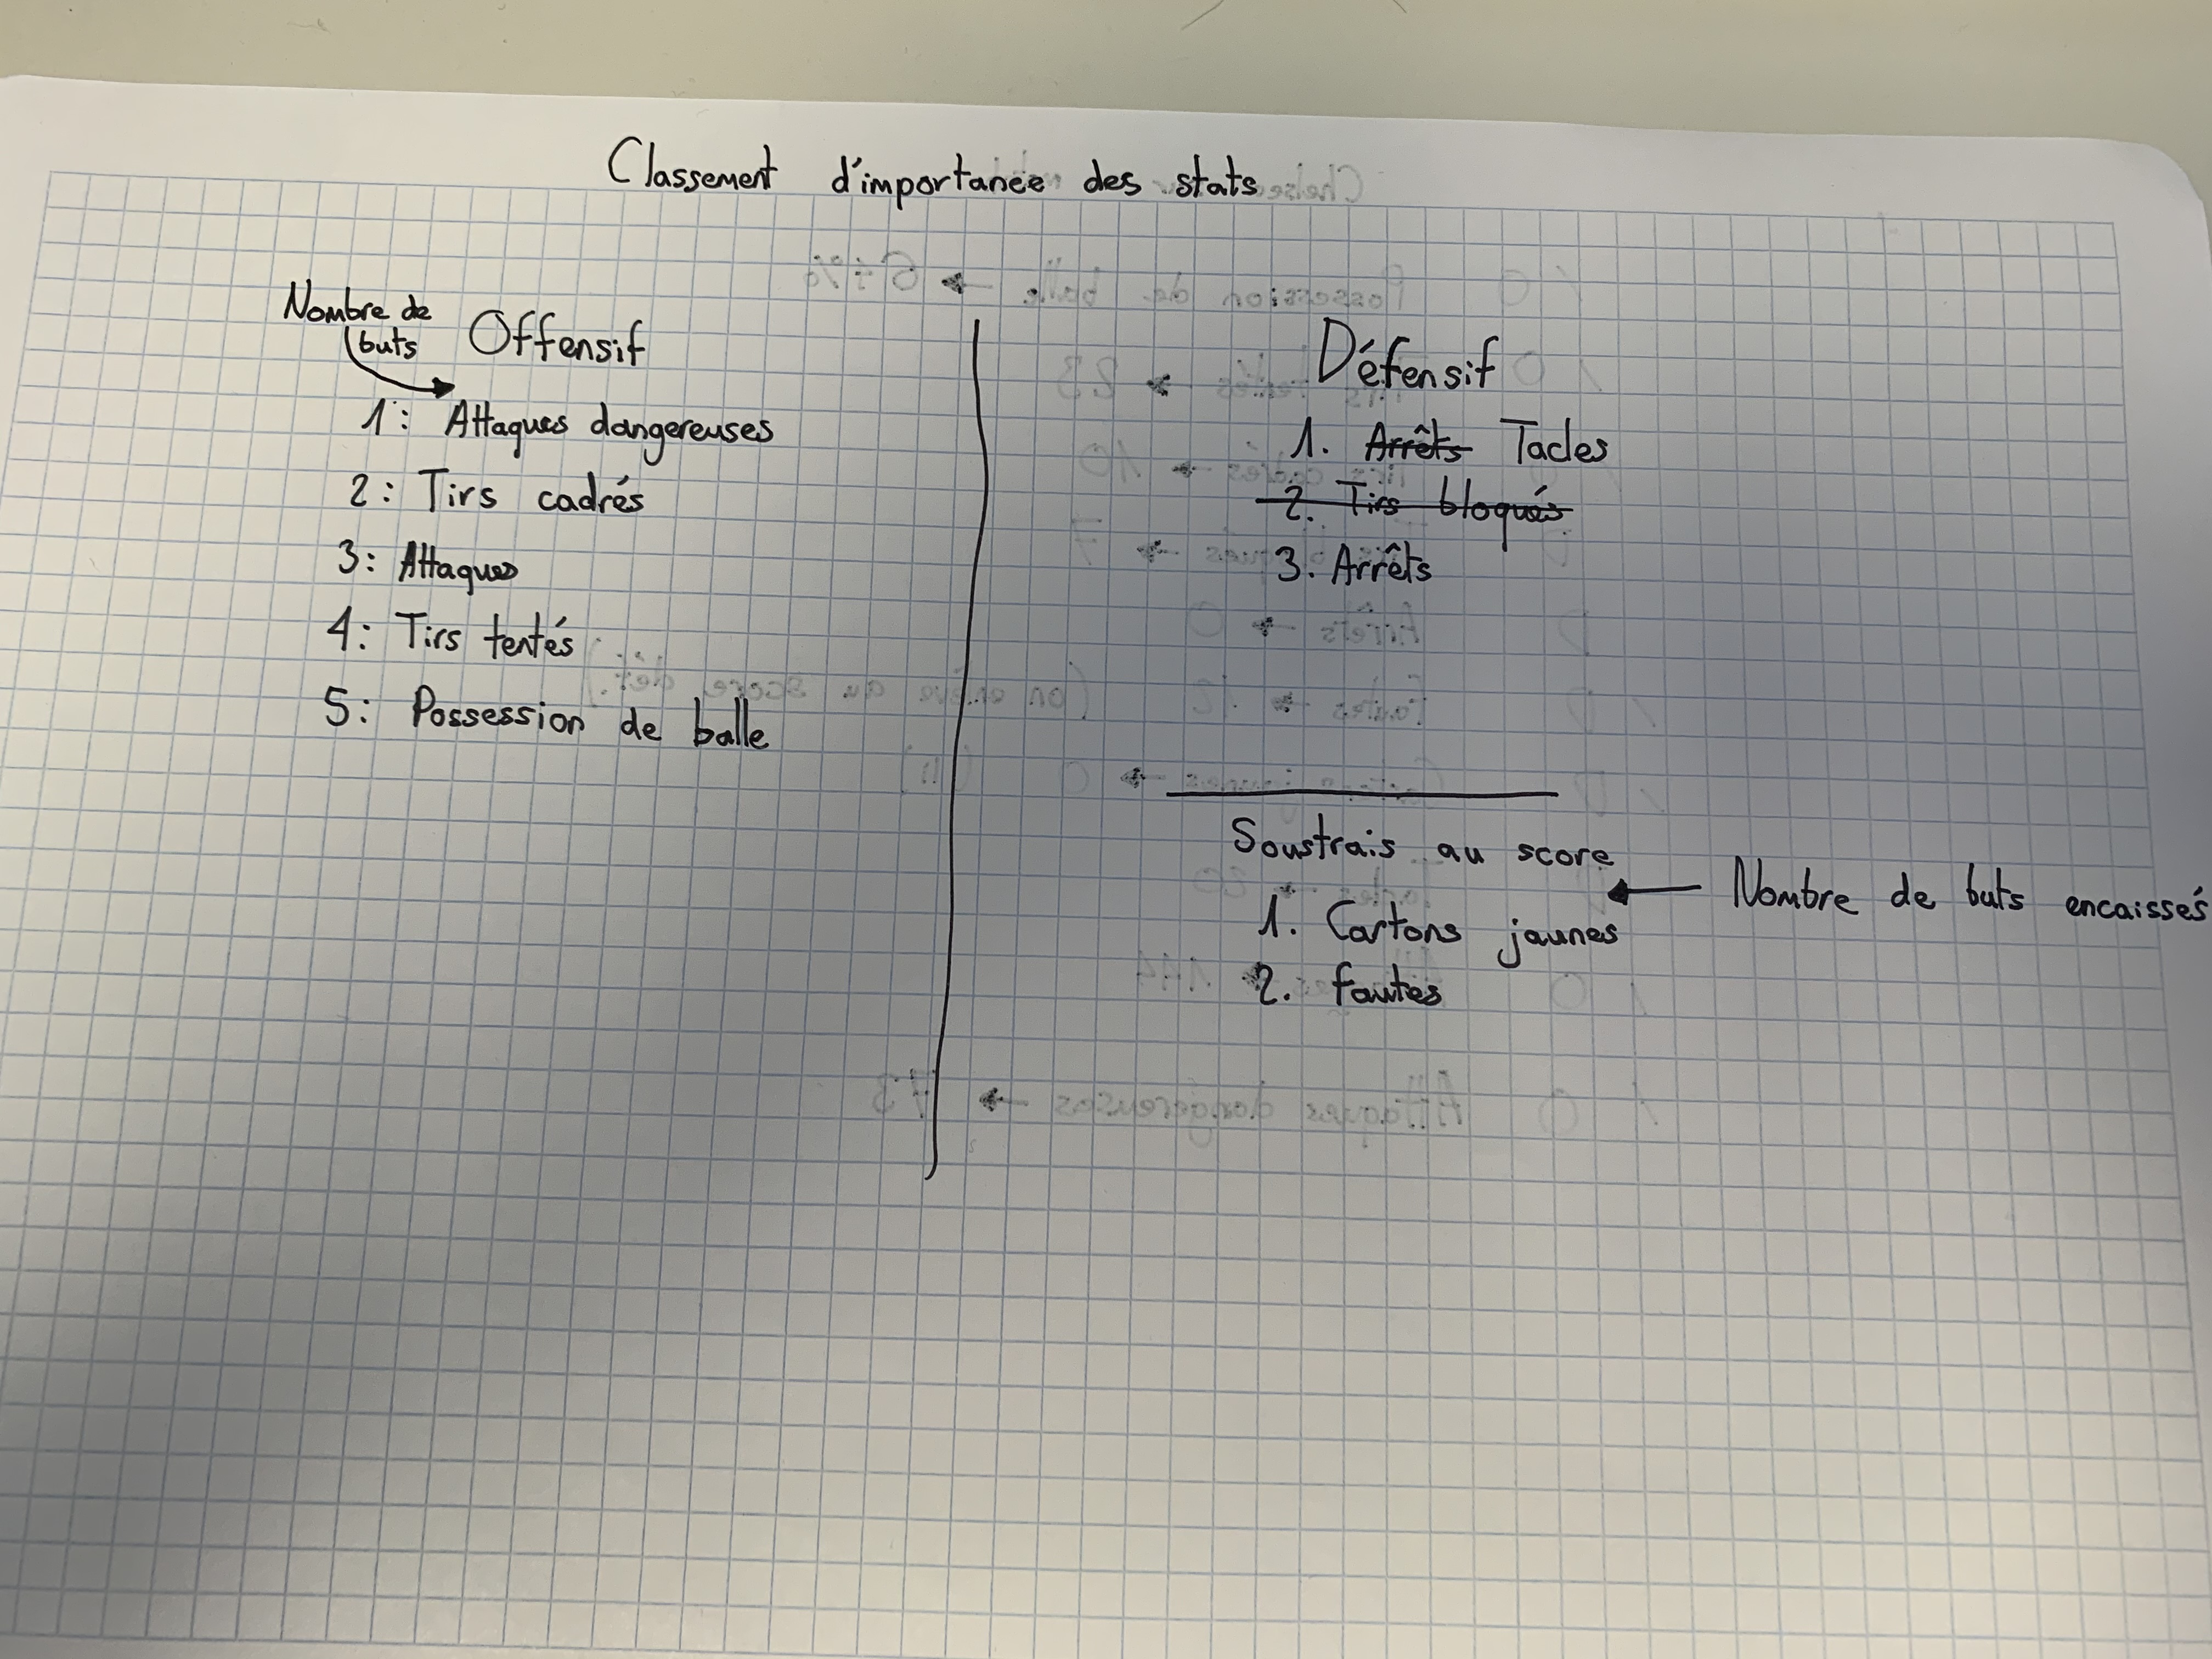 Classement d'importance des stats
Nombre de
buts
Offensif
1: Attaques dangereuses
2: Tirs cadrés
3: Attaques
4: Tirs tentés
5: Possession de balle
Défensif
1. Arrêts Tacles
2. Tirs bloqués
3. Arrêts
Soustrais au score
Nombre de buts encaissés
1. Cartons jaunes
2. fautes